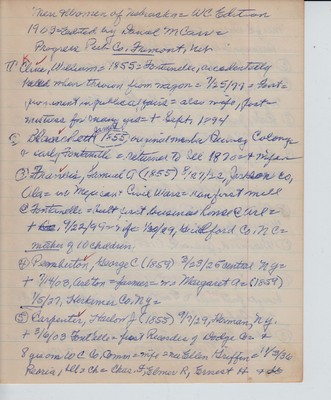 Men & Women of Nebraska = WC Edition
1903 = Edited by Daniel M Carr =
Progress Pub Co. Fremont, Neb
① Cline, William = 1855 = Fontenelle, accidentally
killed when thrown from wagon = 7/25/77 =
prominent in public = also wife, post-
mistress for many years = + Sept. 1894
② Blanchett 1855, original member Quincy Colony
early Fontenelle = returned to Ill 1870 =
③ Francis, Samuel A (1855) 7/27/22, Jackson Co,
Ala = in Mexican + Civil Wars = ran first mill
@ Fontenelle = built first business house @
+ 9/22/99 = wife 1/30/29, Guilford Co, N.C =
mother of 10 children.
④ Pemberton, George C (1859) 2/23/25 central N.Y =
+ 7/14/03, = farmer = Margaret A = (1859)
1/5/27, Herkimer Co, N.Y =
⑤ Carpenter, J (1855) 9/7/29, Homan, N.Y.
+ 3/6/03 Fontenelle = first Recorder of Dodge Co = +
8 yrs on W C Co. Comm = wife = Ellen Griffin = 11/3/36
Peoria, Ill = Ch = Chas. F, Elmer R, Ernest H